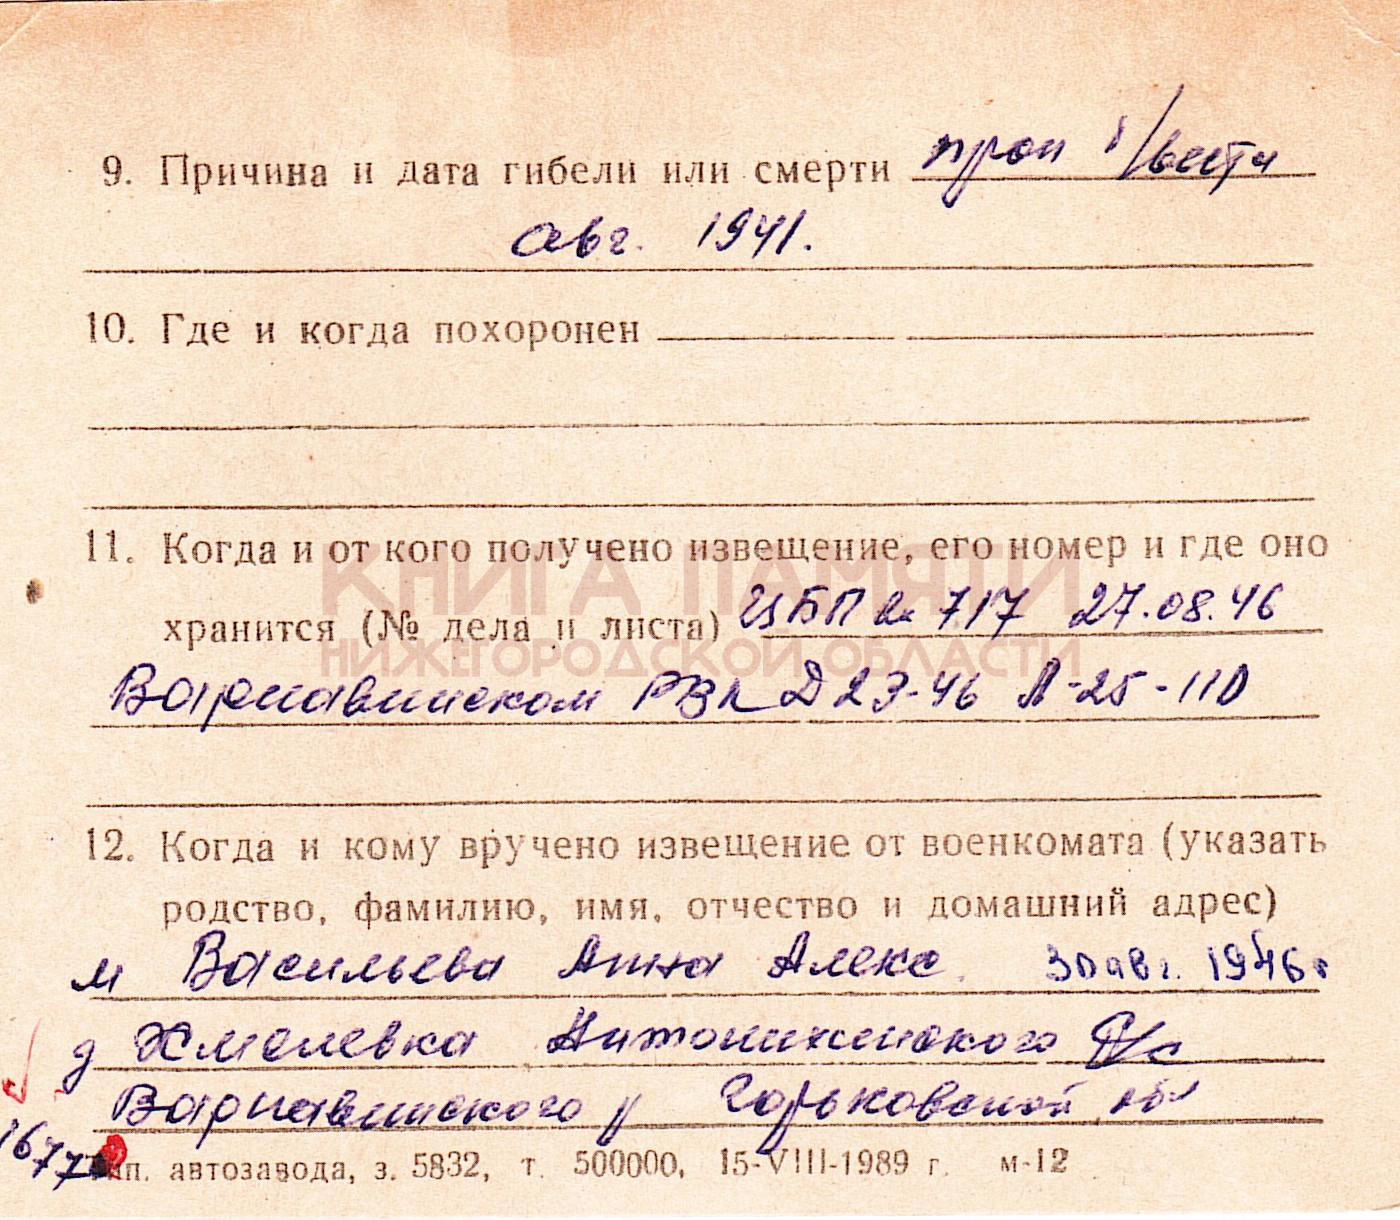 9. Причина и дата гибели или смерти проп б/вести
авг. 1941.
10. Где и когда похоронен
11. Когда и от кого получено извещение, его номер и где оно
КНИГА ПАМЯТИ
хранится (№ дела и листа) ЦБП № 717 27.08.46
НИЖЕГОРОДСКОЙ ОБЛАСТИ
Варнавинском РВК Д 23-46 Л-25-110
12. Когда и кому вручено извещение от военкомата (указать
родство, фамилию, имя, отчество и домашний адрес)
м Васильева Анна Алекс. 30 авг. 1946г
д Хмелевка Антонихинского с/с
Варнавинского р Горьковской обл
Тип. автозавода, з. 5832, т. 500000, 15-VIII-1989 г. м-12